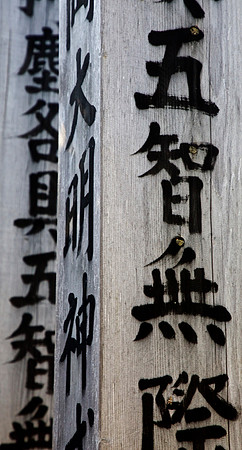 五智無際
大明神
塵各具五智無